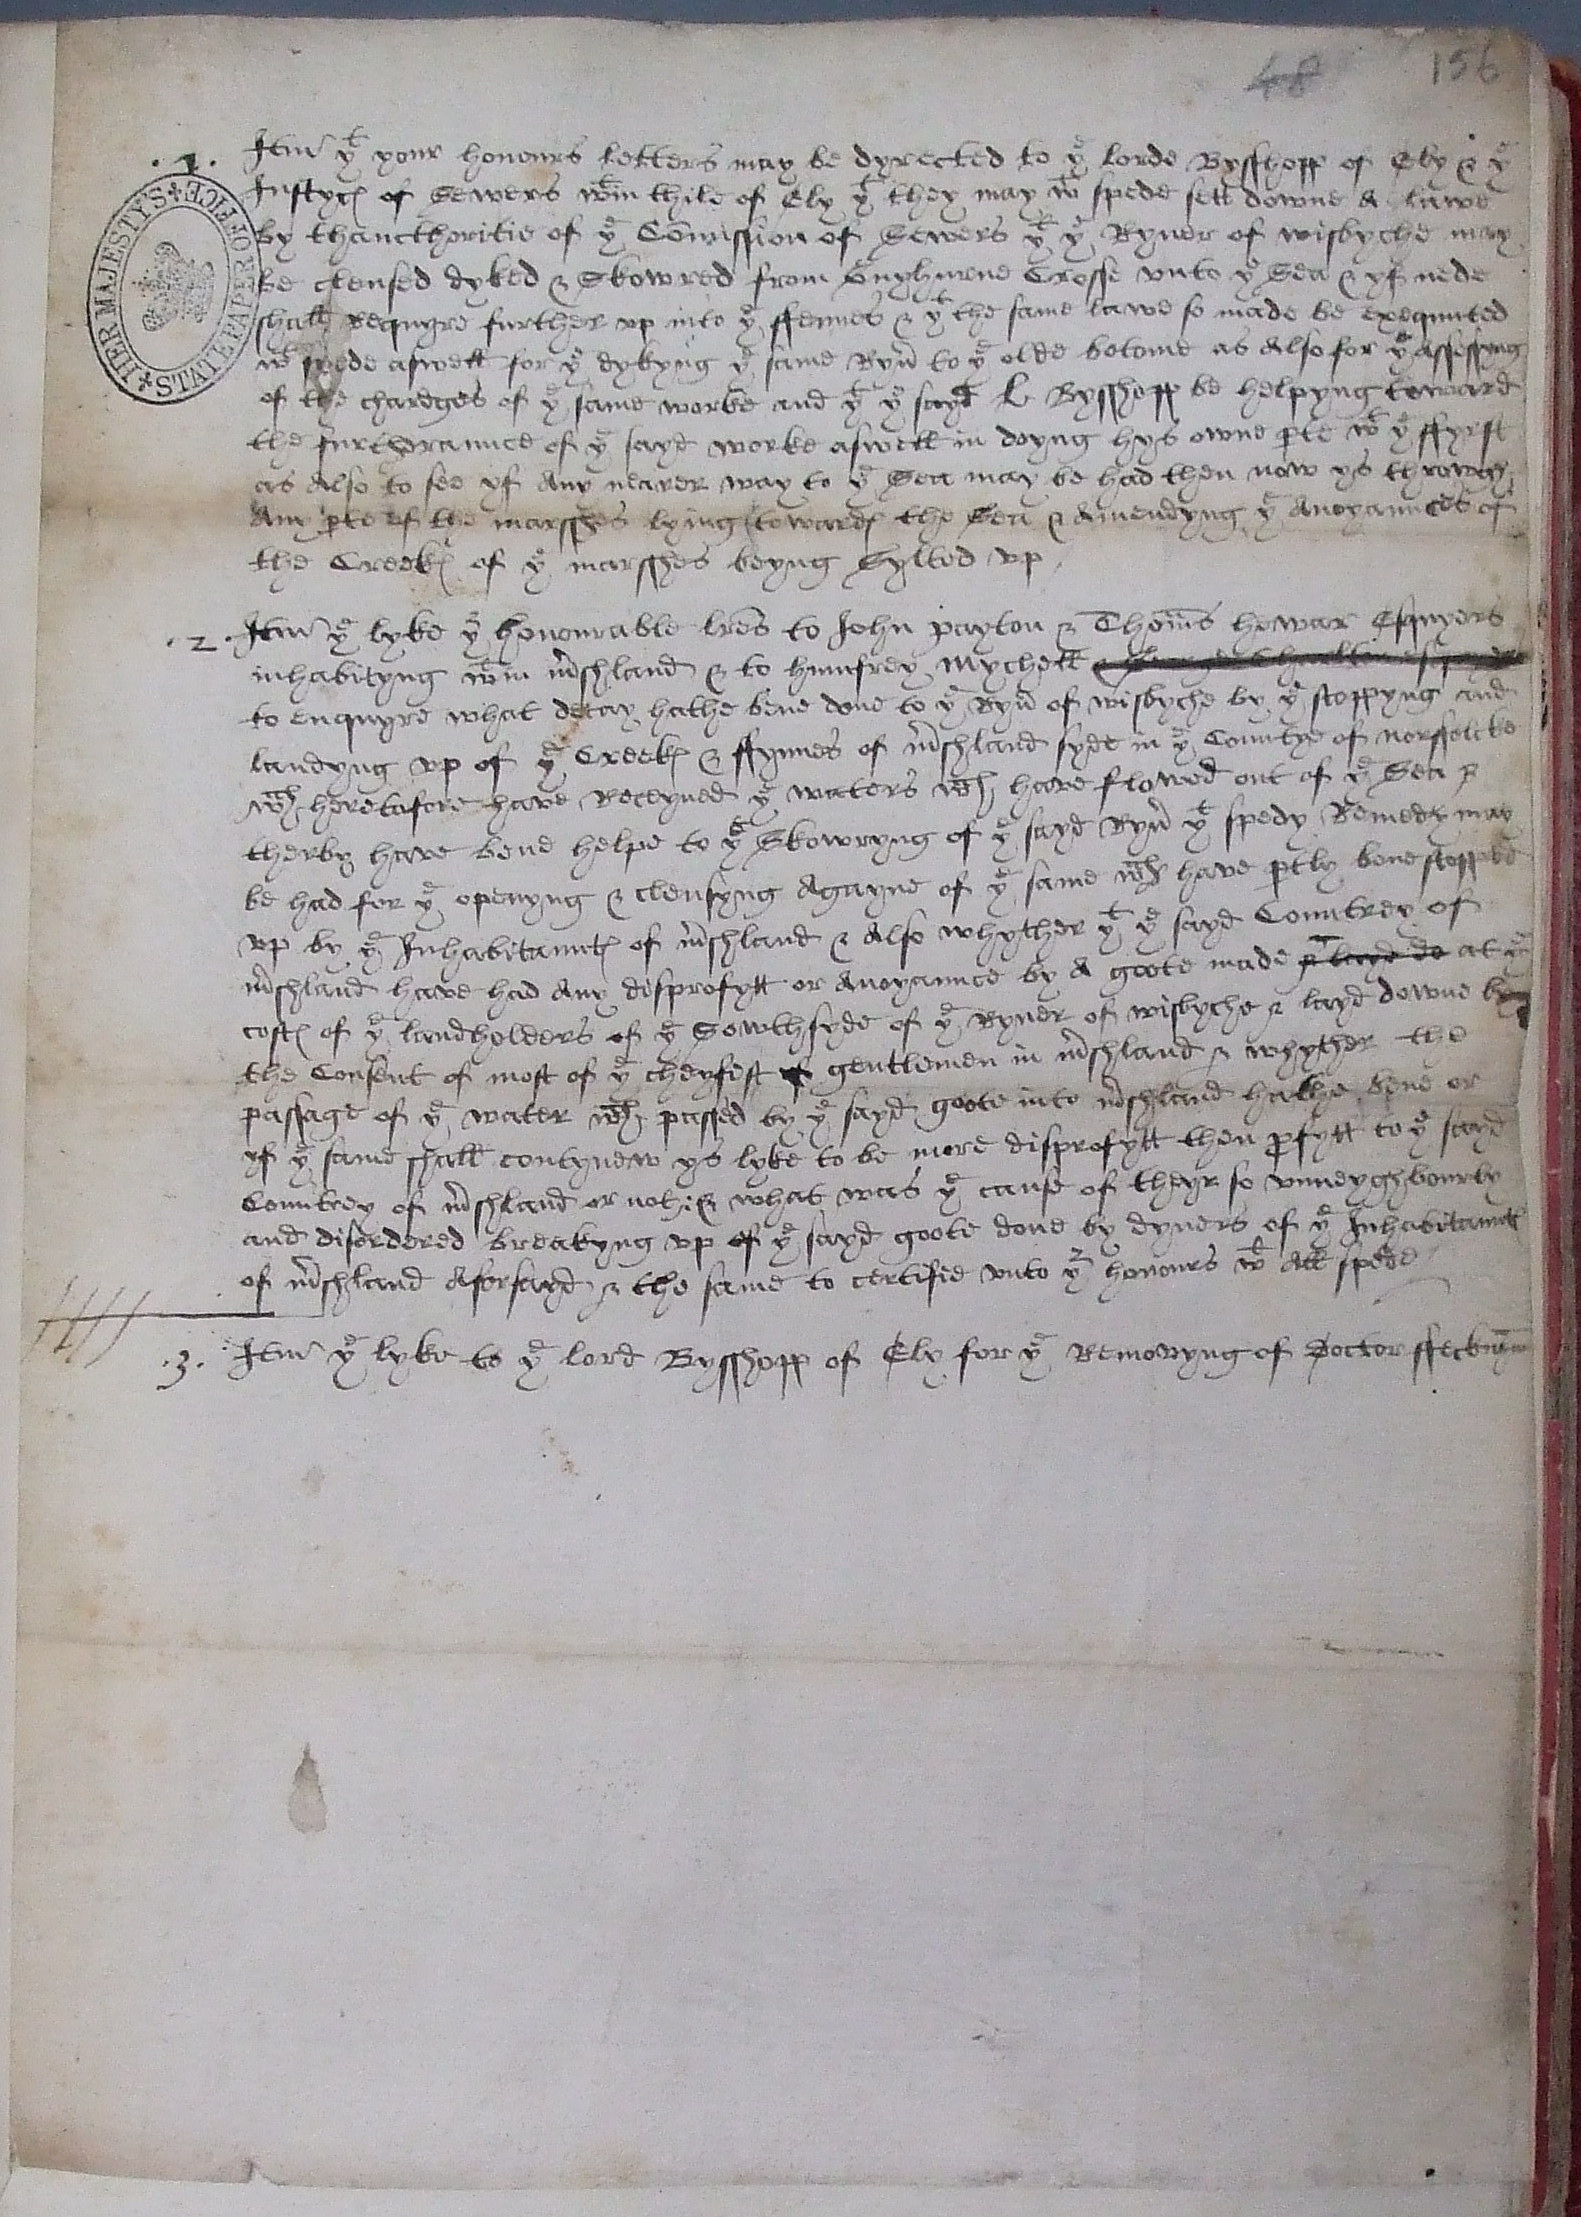 48 156
HER MAJESTY'S STATE PAPER OFFICE
.1. Itm yt your honours letters may be dyrected to ye lorde Bysshopp of Ely & ye
Justyc of Sewers wtin thile of Ely yt they may wt spede sett downe A lawe
by thaucthoritie of ye Comission of Sewers yt ye Ryver of wisbyche may
be clensed dyked & Skowred from Guyhurne Crosse vnto ye Sea & yf nede
shall Requyre further vp into ye ffennes & yt the same lawe so made be exequuted
wt spede aswell for ye dykyng ye same Ryv to ye olde botome as Also for ye Assessyng
of the chardges of ye same worke and yt ye sayd L Bysshopp be helpyng toward
the furtherannce of ye sayd worke aswell in doyng hys owne pte wt ye ffyrst
as Also to see yf Any nearer way to ye Sea may be had then now ys throwgh
Any pte of the marsshes lying towards the Sea & Amendyng ye Anoyannces of
the Creeks of ye marsshes beyng Sylted vp
.2. Itm ye lyke yr honourable lres to John payton & Thoms hewar Esquyers
inhabityng wtin mshland & to humfrey Mychell
to enquyre what decay hathe bene done to ye Ryv of wisbyche by ye stoppyng and
landyng vp of ye Creeks & ffynnes of mshland syde in ye Countye of norffolcke
wch heretofore have Receyued ye waters wch have flowed out of ye Sea &
therby have bene helpe to ye Skowryng of ye sayd Ryv yt spedy Remedy may
be had for ye openyng & clensyng Agayne of ye same wch have ptly bene stopped
vp by ye Inhabitannts of mshland & Also whyther yt ye sayd Countrey of
mshland have had Any disprofytt or Anoyannce by A goote made & layd do at ye
costs of ye landholders of ye Sowthsyde of ye Ryver of wisbyche & layd downe by
the Consent of most of ye cheyfest of gentlemen in mshland & whyther the
passage of ye water wch passed by ye sayd goote into mshland hathe bene or
yf ye same shall contynew ys lyke to be more disprofytt then pfytt to ye sayd
Countrey of mshland or not: & what was ye cause of theyr so vnneyghbourly
and disordered breakyng vp of ye sayd goote done by dyvers of ye Inhabitannts
of mshland Aforsayd & the same to certifie vnto yr honours wt All spede
.3. Itm ye lyke to ye lord Bysshopp of Ely for ye Removyng of Doctor ffecknam